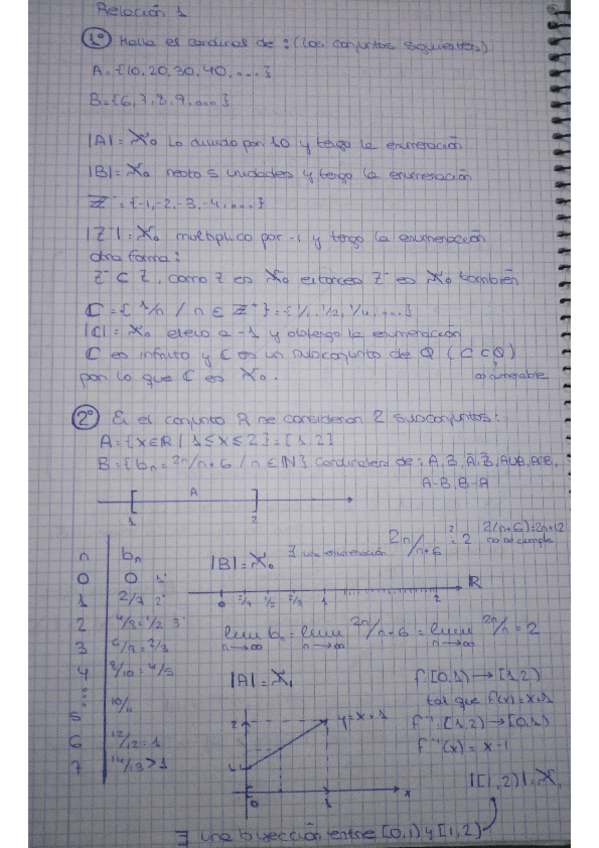 Relación 1
1º Halla el cardinal de : (los conjuntos siguientes)
A = {10, 20, 30, 40, ...}
B = {6, 7, 8, 9, ...}
|A| = ℵ₀ Lo divido por 10 y tengo la enumeración
|B| = ℵ₀ resto 5 unidades y tengo la enumeración
Z⁻ = {-1, -2, -3, -4, ...}
|Z⁻| = ℵ₀ multiplico por -1 y tengo la enumeración
otra forma:
Z⁻ ⊂ Z, como Z es ℵ₀ entonces Z⁻ es ℵ₀ también
C = {1/n / n ∈ Z⁺} = {1/1, 1/2, 1/4, ...}
|C| = ℵ₀ elevo a -1 y obtengo la enumeración
C es infinito y C es un subconjunto de Q (C ⊂ Q)
por lo que C es ℵ₀. numerable
2º En el conjunto R se consideran 2 subconjuntos:
A = {x ∈ R / 1 ≤ x ≤ 2} = [1, 2]
B = {bn = 2n/n+6 / n ∈ N} Cardinales de: A, B, A̅, B̅, A∪B, A∩B,
A-B, B-A
A
1 2
n bn
0 0 1º
1 2/7 2º
2 4/8 = 1/2 3º
3 6/9 = 2/3
4 8/10 = 4/5
5 10/11
6 12/12 = 1
7 14/13 > 1
|B| = ℵ₀ ∃ una enumeración 2n/n+6 = 2 2(n+6) = 2n+12
no se cumple
0 2/7 1/2 2/3 1 2 R
lim bn = lim 2n/n+6 = lim 2n/n = 2
n→∞ n→∞ n→∞
|A| = ℵ₁
f: [0,1) → [1,2)
tal que f(x) = x+1
f⁻¹: [1,2) → [0,1)
f⁻¹(x) = x-1
2 y = x+1
1
0 1 x
|[1,2)| = ℵ₁
∃ una biyección entre [0,1) y [1,2)